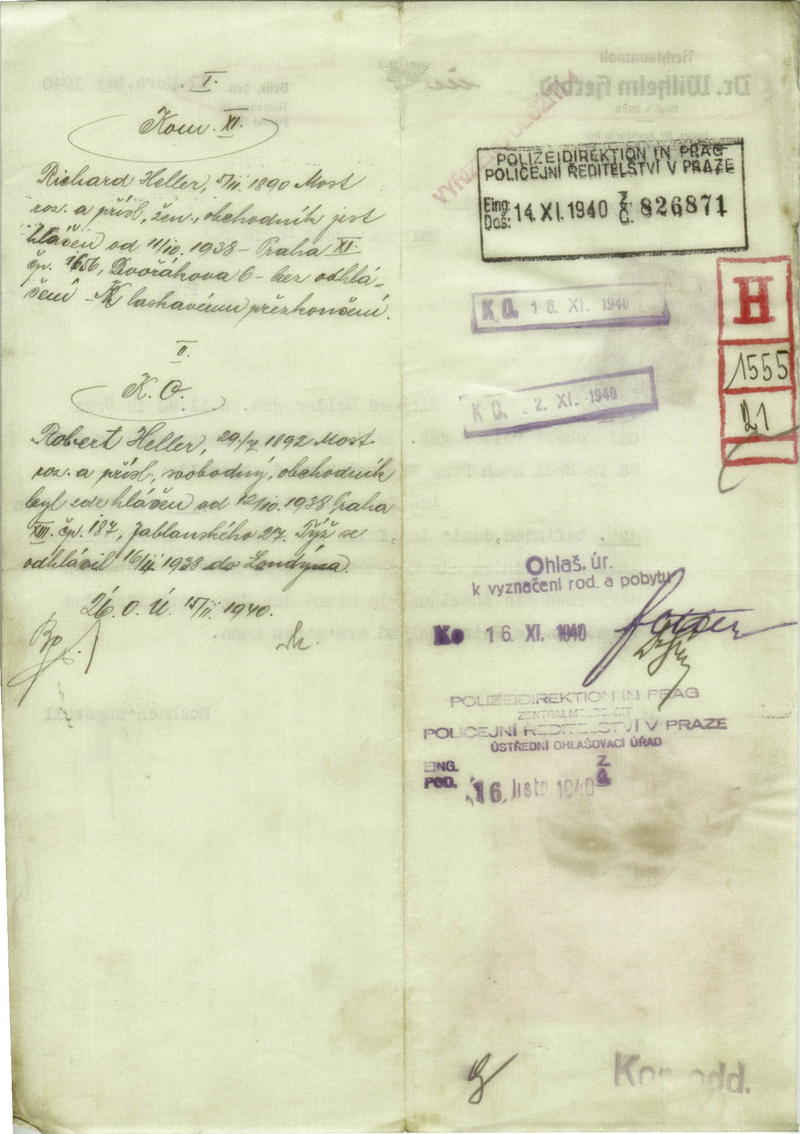 I.
Kom. XI.
Richard Heller, 5/II. 1890 Most
roz. a přísl., žen., obchodník jest
hlášen od 11/10. 1938 – Praha XI.
čp. 1656, Dvořákova 6 – bez odhlá-
šení – K laskavému přezkoušení.
II.
K. O.
Robert Heller, 1892 Most
roz. a přísl., svobodný, obchodník
byl zde hlášen od 12/10. 1938 Praha
XIII. čp. 187, Jablanského 27. Týž se
odhlásil 1938 do Londýna.
O. Ú. 15/11. 1940.
Rechtsanwalt
Dr. Wilhelm
1940
POLIZEIDIREKTION IN PRAG
POLICEJNÍ ŘEDITELSTVÍ V PRAZE
Eing:
Daš: 14. XI. 1940 Z. Č. 826871
K O. 16. XI. 1940
K O. 2. XI. 1940
H
1555
21
Ohlaš. úr.
k vyznačení rod. a pobytu
Ko 16. XI. 1940
POLIZEIDIREKTION IN PRAG
POLICEJNÍ ŘEDITELSTVÍ V PRAZE
ÚSTŘEDNÍ OHLAŠOVACÍ ÚŘAD
EING.
POD. 16. listp 1940 Z. Č.